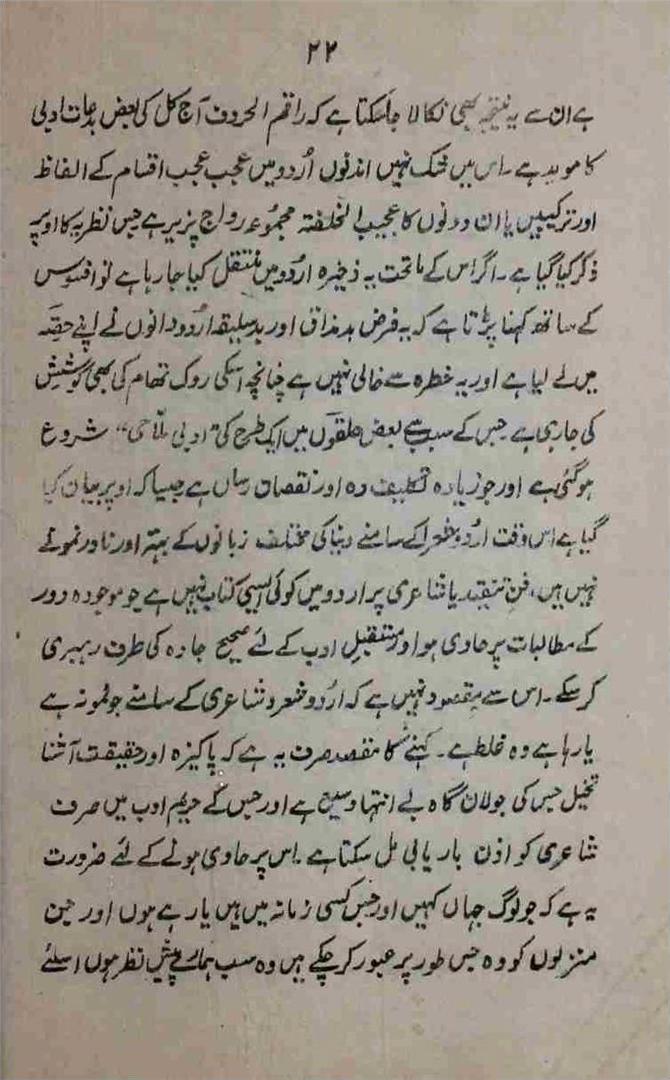 ۲۲
ہے ان سے یہ نتیجہ بھی نکالا جاسکتا ہے کہ راقم الحروف آج کل کی بعض بدعات ادبی
کا موید ہے ۔ اس میں شک نہیں اندنوں اُردو میں عجب عجب اقسام کے الفاظ
اور ترکیبیں یا ان دونوں کا عجیب الخلقتہ مجموعہ رواج پزیر ہے جس نظریہ کا اوپر
ذکر کیا گیا ہے ۔ اگر اس کے ماتحت یہ ذخیرہ اردو میں منتقل کیا جارہا ہے تو افسوس
کے ساتھ کہنا پڑتا ہے کہ یہ فرض بدمذاق اور بدسلیقہ اُردو دانوں نے اپنے حصّہ
میں لے لیا ہے اور یہ خطرہ سے خالی نہیں ہے چنانچہ اسکی روک تھام کی بھی کوشش
کی جارہی ہے جس کے سبب سے بعض حلقوں میں ایک طرح کی "ادبی ملّاحی" شروع
ہوگئی ہے اور جو زیادہ تکلیف دہ اور نقصان رساں ہے جیسا کہ اوپر بیان کیا
گیا ہے اس وقت اُردو شعرا کے سامنے دنیا کی مختلف زبانوں کے بہتر اور نادر نمونے
نہیں ہیں، فن تنقید یا شاعری پر اردو میں کوئی ایسی کتاب نہیں ہے جو موجودہ دور
کے مطالبات پر حاوی ہو اور مستقبل ادب کے لئے صحیح جادہ کی طرف رہبری
کرسکے ۔ اس سے مقصود نہیں ہے کہ اُردو شعر و شاعری کے سامنے جو نمونہ ہے
یا رہا ہے وہ غلط ہے ۔ کہنے کا مقصد صرف یہ ہے کہ پاکیزہ اور حقیقت آشنا
تخیل جس کی جولان گاہ بے انتہا وسیع ہے اور جس کے حریم ادب میں صرف
شاعری کو اذن باریابی مل سکتا ہے ۔ اس پر حاوی ہونے کے لئے ضرورت
یہ ہے کہ جو لوگ جہاں کہیں اور جس کسی زمانہ میں ہیں یا رہے ہوں اور جن
منزلوں کو وہ جس طور پر عبور کرچکے ہیں وہ سب ہمارے پیش نظر ہوں اسلئے